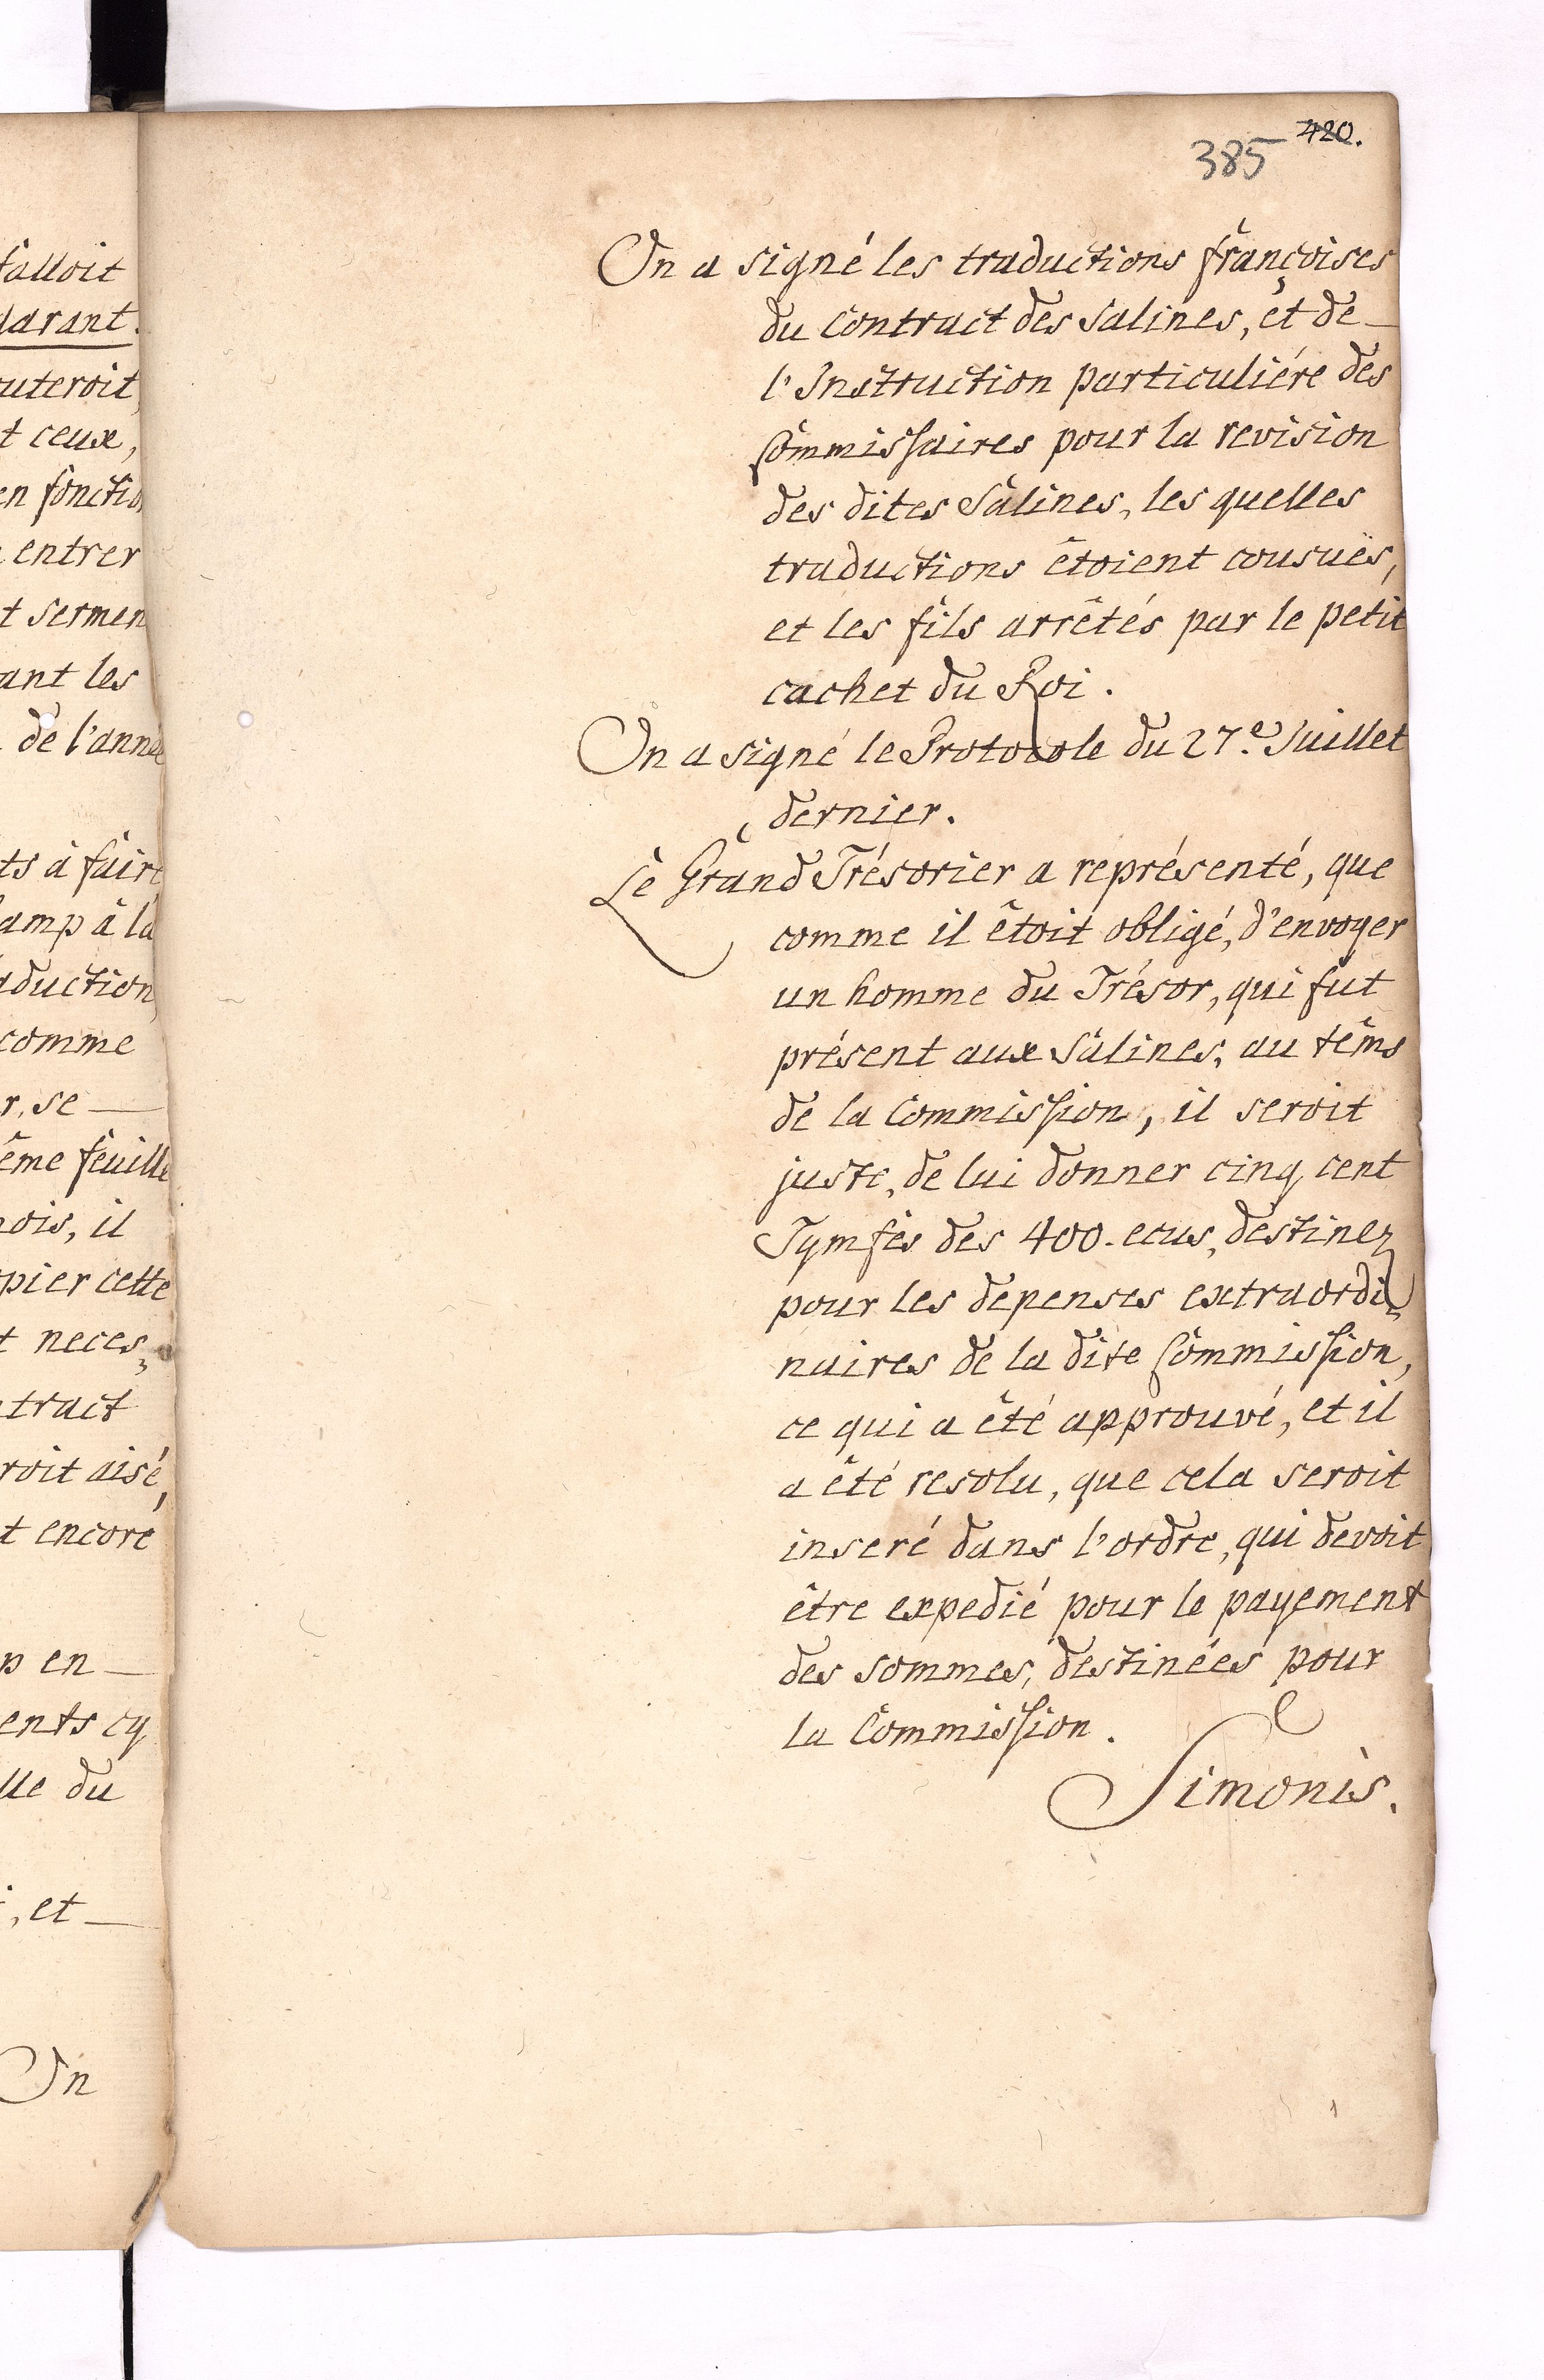 falloit
garant.
uteroit,
t ceux,
en fonctio
entrer
t sermen
ant les
de l'année
ts à faire
amp à la
duction,
comme
r, se —
ême feuille
nois, il
pier cette
t neces,,
tract
roit aisé,
t encore
p en —
ents cy
lle du
, et —
On
385 420.
On a signé les traductions françoises
du Contract des Salines, et de —
l'Instruction particuliére des
Commissaires pour la revision
des dites Salines, les quelles
traductions êtoient cousuës,
et les fils arrêtés par le petit
cachet du Roi.
On a signé le Protocole du 27.e Juillet
dernier.
Le Grand Trésorier a représenté, que
comme il êtoit obligé, d'envoyer
un homme du Trésor, qui fut
présent aux Salines, au têms
de la Commission, il seroit
juste, de lui donner cinq cent
Tymfes des 400. ecus, destinez
pour les depenses extraordi,,
naires de la dite Commission,
ce qui a êté approuvé, et il
a êté resolu, que cela seroit
inseré dans l'ordre, qui devoit
être expedié pour le payement
des sommes, destinées pour
la Commission.
Simonis.